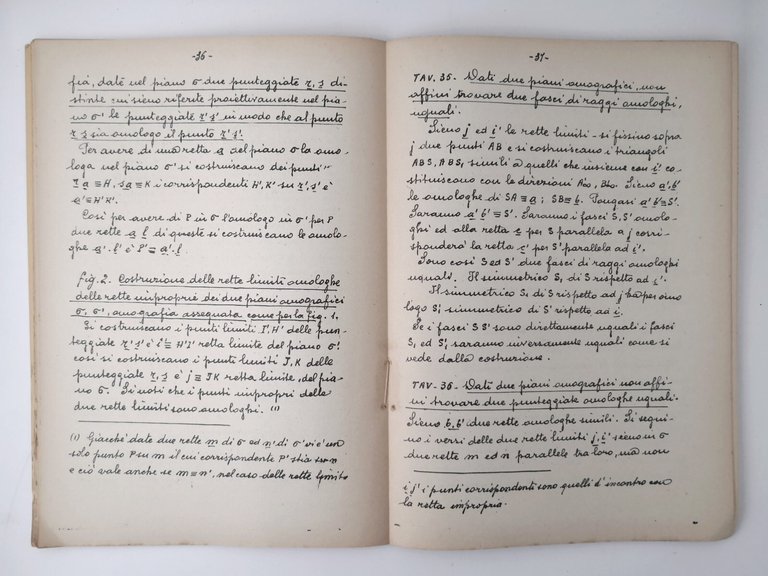 -36-
fia, date nel piano σ due punteggiate r, s di-
stinte mi sieno riferite proiettivamente nel pia-
no σ' le punteggiate r' s' in modo che al punto
r s sia omologo il punto r' s'.
Per avere di una retta a del piano σ la omo-
loga nel piano σ' si costruiscano dei punti
r a ≡ H, s a ≡ K i corrispondenti H', K' su r', s' è
a' ≡ H' K'.
Così per avere di P in σ l'omologo in σ' per P
due rette a l di queste si costruiscano le omolo-
ghe a' l' è P' ≡ a' l'.
fig. 2. Costruzione delle rette limiti omologhe
delle rette improprie dei due piani omografici
σ, σ', omografia assegnata come per la fig. 1.
Si costruiscano i punti limiti I', H' delle pun-
teggiate r' s' è i' ≡ H' I' retta limite del piano σ'.
così si costruiscano i punti limiti J, K delle
punteggiate r, s è j ≡ JK retta limite, del pia-
no σ. Si noti che i punti impropri delle
due rette limiti sono omologhi. (1)
(1) Giacchè date due rette m di σ ed n' di σ' vi è un
solo punto P su m il cui corrispondente P' stia su n
e ciò vale anche se m ≡ n', nel caso delle rette limiti
-37-
TAV. 35- Dati due piani omografici, non
affini trovare due fasci di raggi omologhi,
uguali.
Sieno j ed i' le rette limiti - si fissino sopra
j due punti AB e si costruiscano i triangoli
ABS, ABS₁ simili a quelli che insieme con i' co-
stituiscano con le direzioni A∞, B∞. Sieno a', b'
le omologhe di SA ≡ a; SB ≡ b. Pongasi a' b' ≡ S'.
Saranno a' b' ≡ S'. Saranno i fasci S, S' omolo-
ghi ed alla retta per S parallela a j corri-
sponderà la retta per S' parallela ad i'.
Sono così S ed S' due fasci di raggi omologhi
uguali. Il simmetrico S₁ di S rispetto ad i'.
Il simmetrico S₁ di S rispetto ad j ha per omo
logo S'₁ simmetrico di S' rispetto ad i.
Se i fasci S S' sono direttamente uguali i fasci
S₁ ed S'₁ saranno inversamente uguali come si
vede dalla costruzione.
TAV-36- Dati due piani omografici non affi-
ni trovare due punteggiate omologhe uguali.
Sieno b, b' due rette omologhe simili. Si segui-
no i versi delle due rette limiti j, i' sieno in σ
due rette m ed n parallele tra loro, ma non
i j' i punti corrispondenti sono quelli d'incontro con
la retta impropria.